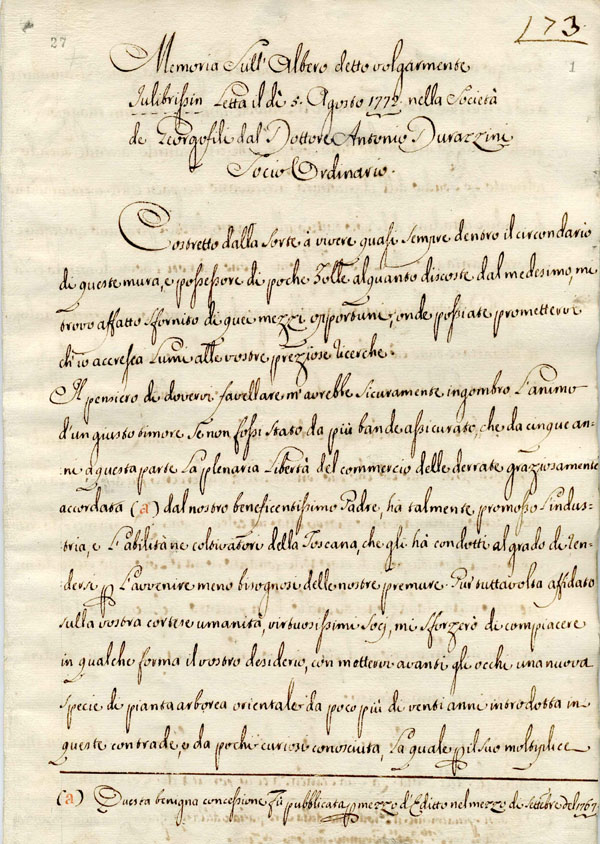 173
27
1
Memoria Sull' Albero detto volgarmente
Julibrissin Letta il dì 5. Agosto 1772. nella Società
de Georgofili dal Dottore Antonio Durazzini
Socio Ordinario.
Costretto dalla Sorte a vivere quasi sempre dentro il circondario
di queste mura, e possessore di poche Zolle alquanto discoste dal medesimo, mi
trovo affatto sfornito di quei mezzi opportuni, onde possiate promettervi
ch'io accresca Lumi alle vostre preziose ricerche.
Il pensiero di dovervi favellare m'avrebbe sicuramente ingombro L'animo
d'un giusto timore se non fossi stato da più bande assicurato, che da cinque an=
ni a questa parte La plenaria Libertà del commercio delle derrate graziosamente
accordata (a) dal nostro beneficentissimo Padre, hà talmente promosso l'indus=
tria, e L'abilità ne coltivatori della Toscana, che gli hà condotti al grado di ren=
dersi p L'avvenire meno bisognosi delle nostre premure. Pur tuttavolta affidato
sulla vostra cortese umanità, virtuosissimi Socj, mi sforzerò di compiacere
in qualche forma il vostro desiderio, con mettervi avanti gli occhi una nuova
specie di pianta arborea orientale da poco più di venti anni introdotta in
queste contrade, e da pochi curiosi conosciuta, La quale p il suo moltiplice
(a) Questa benigna concessione fù pubblicata p mezzo d'Editto nel mezzo di Settembre del 1767.